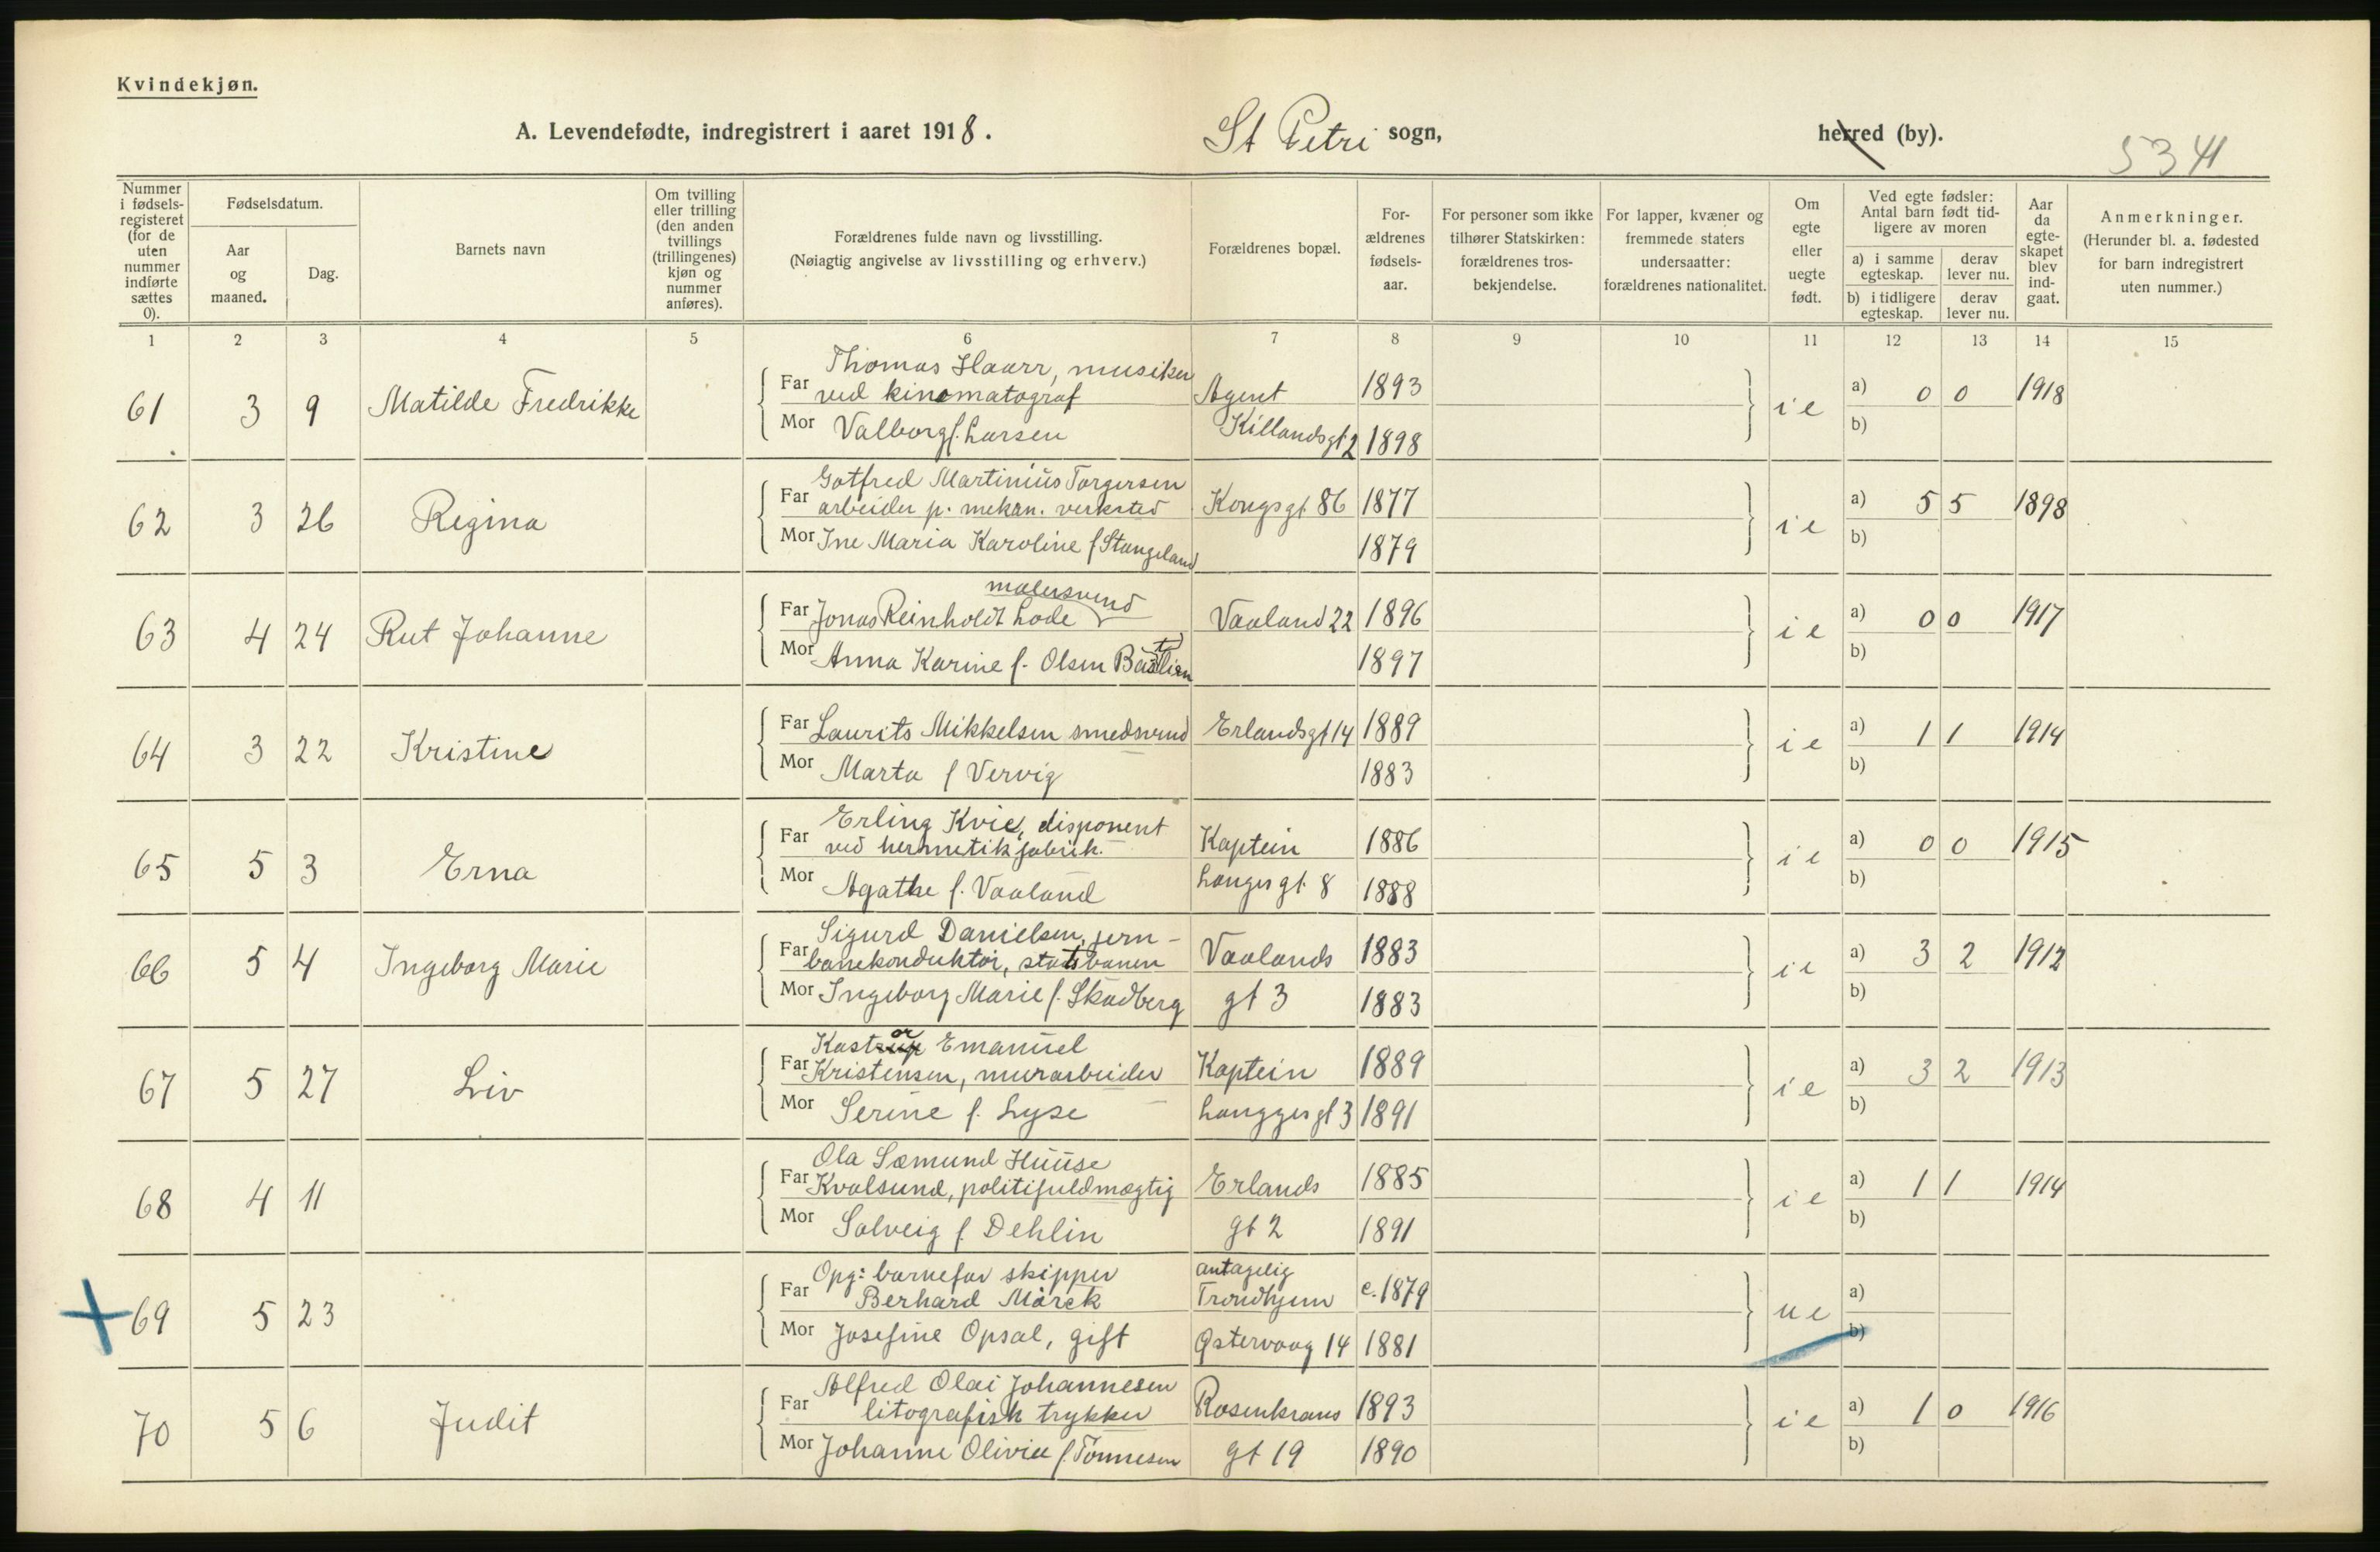 Kvindekjøn.
A. Levendefødte, indregistrert i aaret 1918. St Petri sogn, herred (by).
5341
Nummer i fødsels-registeret (for de uten nummer indførte sættes 0).
Fødselsdatum.
Aar og maaned.
Dag.
Barnets navn
Om tvilling eller trilling (den anden tvillings (trillingenes) kjøn og nummer anføres).
Forældrenes fulde navn og livsstilling.
(Nøiagtig angivelse av livsstilling og erhverv.)
Forældrenes bopæl.
For-ældrenes fødsels-aar.
For personer som ikke tilhører Statskirken: forældrenes tros-bekjendelse.
For lapper, kvæner og fremmede staters undersaatter: forældrenes nationalitet.
Om egte eller uegte født.
Ved egte fødsler: Antal barn født tid-ligere av moren
a) i samme egteskap.
derav lever nu.
b) i tidligere egteskap.
derav lever nu.
Aar da egte-skapet blev ind-gaat.
Anmerkninger.
(Herunder bl. a. fødested for barn indregistrert uten nummer.)
1 2 3 4 5 6 7 8 9 10 11 12 13 14 15
Thomas Haarr, musiker
61 3 9 Matilde Fredrikke Far ved kinematograf Agent 1893 ie a) 0 0 1918
Mor Valborg f. Larsen Killandsgt 2 1898 b)
Gotfred Martinius Torgersen
62 3 26 Regina Far arbeider p. mekan. verksted Kongsgt 86 1877 ie a) 5 5 1898
Mor Ine Maria Karoline f Stangeland 1879 b)
malersvend
63 4 24 Rut Johanne Far Jonas Reinholdt Lode Vaaland 22 1896 ie a) 0 0 1917
Mor Anna Karine f. Olsen 1897 b)
64 3 22 Kristine Far Laurits Mikkelsen smedsvend Erlandsgt 14 1889 ie a) 1 1 1914
Mor Marta f Vervig 1883 b)
Erling Kvie, disponent
65 5 3 Erna Far ved hermetikfabrik. Kaptein 1886 ie a) 0 0 1915
Mor Agathe f. Vaaland Langes gt. 8 1888 b)
Sigurd Danielsen, jern-
66 5 4 Ingeborg Marie Far banekonduktør, statsbanen Vaalands 1883 ie a) 3 2 1912
Mor Ingeborg Marie f. Skadberg gt 3 1883 b)
Kastrup or Emanuel
67 5 27 Liv Far Kristensen, murarbeider Kaptein 1889 ie a) 3 2 1913
Mor Serine f. Lyse Langges gt 3 1891 b)
Ola Sæmund Huuse
68 4 11 Far Kvalsund, politifuldmægtig Erlands 1885 ie a) 1 1 1914
Mor Solveig f Dehlin gt 2 1891 b)
Opg: barnefar skipper antagelig
+ 69 5 23 Far Berhard Mörck Trondhjem c. 1879 ue a)
Mor Josefine Opsal, gift Østervaag 14 1881 b)
Alfred Olai Johannesen
70 5 6 Judit Far litografisk trykker Rosenkrans 1893 ie a) 1 0 1916
Mor Johanne Oliviee f. Tönnesen gt 19 1890 b)